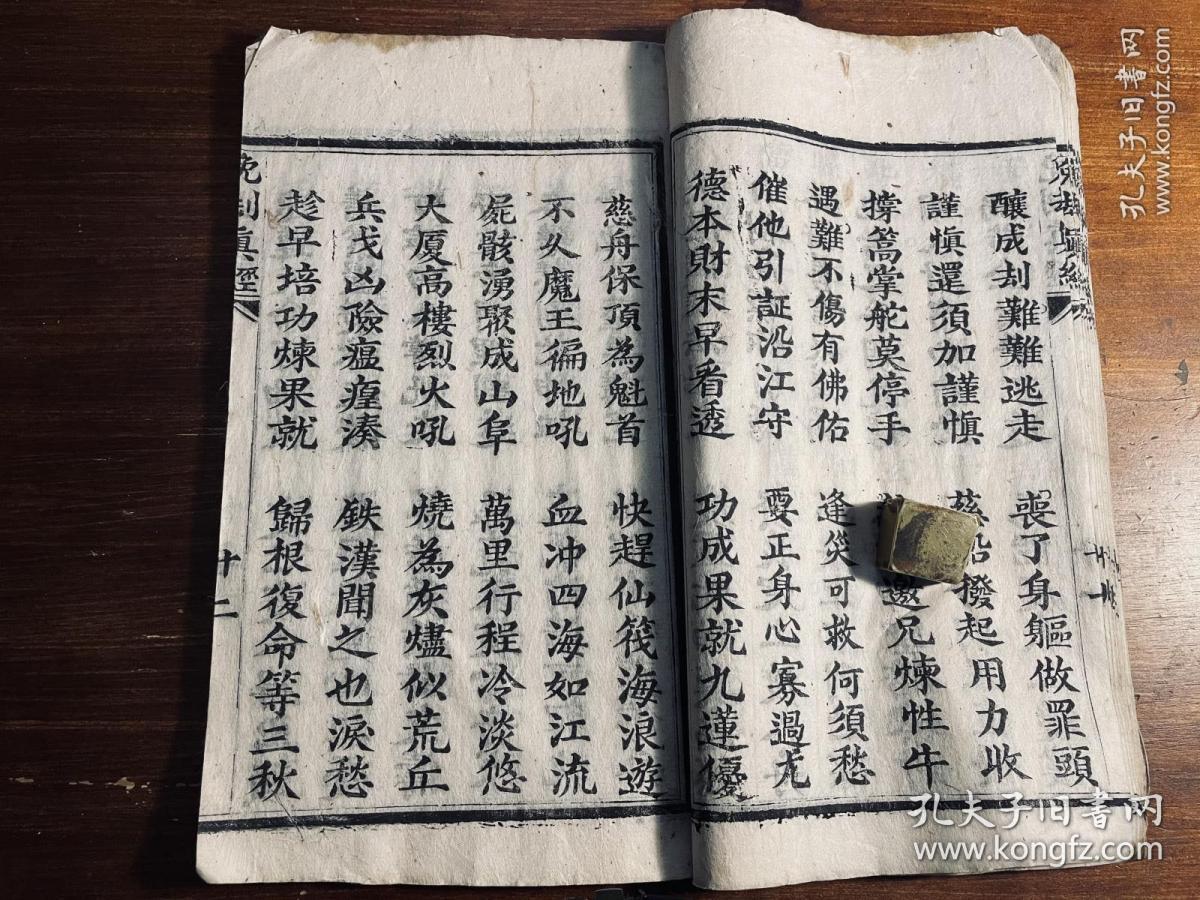 釀成刦難難逃走 喪了身軀做罪頭
謹慎還須加謹慎 慈船撥起用力收
撐篙掌舵莫停手 邀兄煉性牛
遇難不傷有佛佑 逢災可救何須愁
催他引証沿江守 要正身心寡過尤
德本財末早看透 功成果就九蓮優
慈舟保頂為魁首 快趕仙筏海浪遊
不久魔王徧地吼 血冲四海如江流
屍骸湧聚成山阜 萬里行程冷淡悠
大厦高樓烈火吼 燒為灰燼似荒丘
兵戈凶險瘟瘽湊 鉄漢聞之也淚愁
趁早培功煉果就 歸根復命等三秋
真經
十二
孔夫子旧书网
www.kongfz.com
孔夫子旧书网
www.kongfz.com